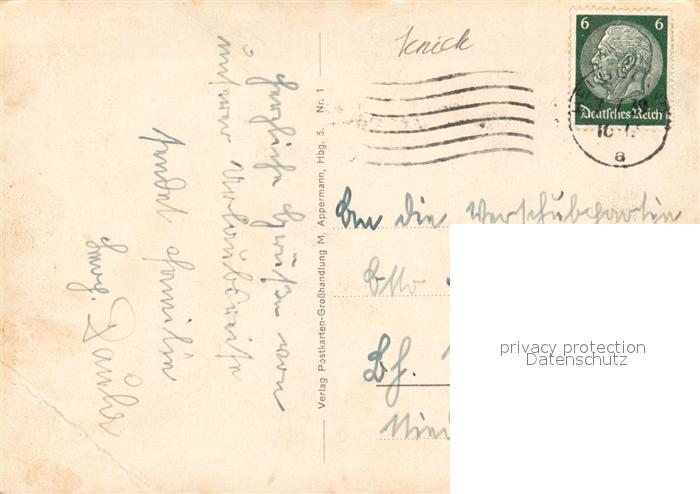 Herzliche Grüße von
unserer Urlaubsreise
sendet Familie
Verlag Postkarten-Großhandlung M. Appermann, Hbg. 5. Nr. 1
Knick
6 6
Deutsches Reich
a
An die
Otto
Bh.
Nied
privacy protection
Datenschutz